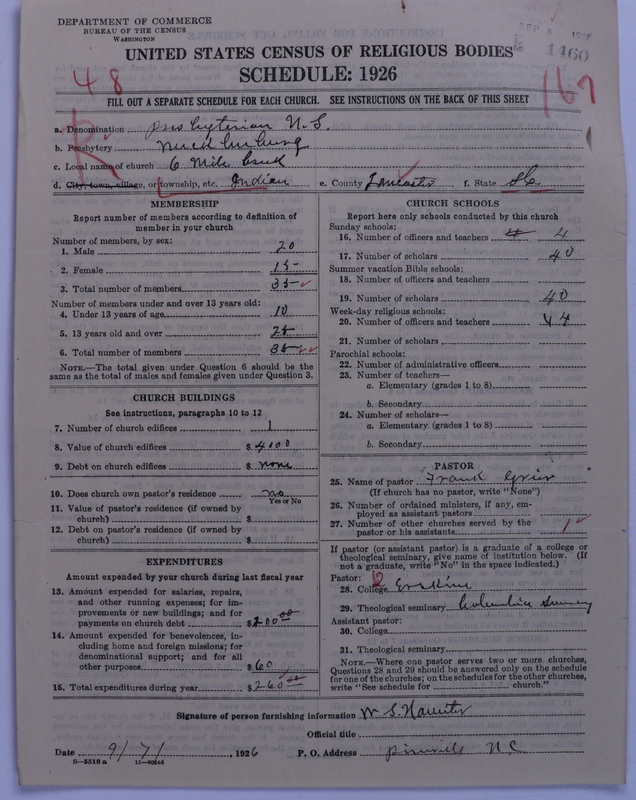 DEPARTMENT OF COMMERCE
BUREAU OF THE CENSUS
WASHINGTON
SEP 8 1926
1460
UNITED STATES CENSUS OF RELIGIOUS BODIES
SCHEDULE: 1926
48
167
FILL OUT A SEPARATE SCHEDULE FOR EACH CHURCH. SEE INSTRUCTIONS ON THE BACK OF THIS SHEET
R
a. Denomination Presbyterian U.S.
b. Presbytery Mecklenburg
c. Local name of church 6 Mile Creek
d. City, town, village, or township, etc. Indian e. County Lancaster f. State SC
MEMBERSHIP
Report number of members according to definition of
member in your church
Number of members, by sex:
1. Male 20
2. Female 15
3. Total number of members 35
Number of members under and over 13 years old:
4. Under 13 years of age 10
5. 13 years old and over 25
6. Total number of members 35
NOTE.—The total given under Question 6 should be
same as the total of males and females given under Question 3.
CHURCH BUILDINGS
See instructions, paragraphs 10 to 12
7. Number of church edifices 1
8. Value of church edifices $ 4000
9. Debt on church edifices $ none
10. Does church own pastor's residence no
Yes or No
11. Value of pastor's residence (if owned by
church) $
12. Debt on pastor's residence (if owned by
church) $
EXPENDITURES
Amount expended by your church during last fiscal year
13. Amount expended for salaries, repairs,
and other running expenses; for im-
provements or new buildings; and for
payments on church debt $ 200.00
14. Amount expended for benevolences, in-
cluding home and foreign missions; for
denominational support; and for all
other purposes $ 60
15. Total expenditures during year $ 260.00
CHURCH SCHOOLS
Report here only schools conducted by this church
Sunday schools:
16. Number of officers and teachers 4 4
17. Number of scholars 40
Summer vacation Bible schools:
18. Number of officers and teachers
19. Number of scholars 40
Week-day religious schools:
20. Number of officers and teachers 4
21. Number of scholars
Parochial schools:
22. Number of administrative officers
23. Number of teachers—
a. Elementary (grades 1 to 8)
b. Secondary
24. Number of scholars—
a. Elementary (grades 1 to 8)
b. Secondary
PASTOR
25. Name of pastor Frank Grier
(If church has no pastor, write "None")
26. Number of ordained ministers, if any, em-
ployed as assistant pastors
27. Number of other churches served by the
pastor or his assistants 1
If pastor (or assistant pastor) is a graduate of a college or
theological seminary, give name of institution below. (If
not a graduate, write "No" in the space indicated.)
Pastor: 2
28. College Erskine
29. Theological seminary Columbia
Assistant pastor:
30. College
31. Theological seminary
NOTE.—Where one pastor serves two or more churches,
Questions 28 and 29 should be answered only on the schedule
for one of the churches; on the schedules for the other churches,
write "See schedule for church."
Signature of person furnishing information W. S.
Official title
Date 9/7/, 1926 P. O. Address N.C
8—5518 a